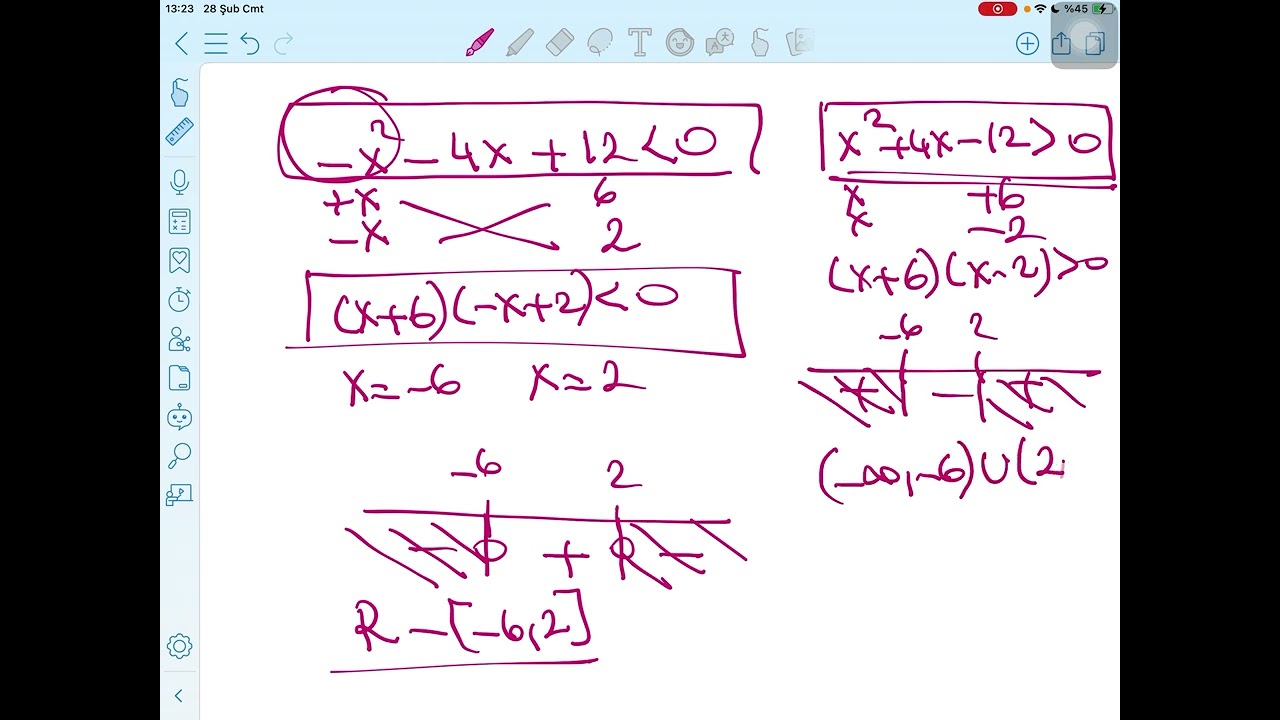 13:23 28 Şub Cmt %45
T
-x² - 4x + 12 < 0
+x 6
-x 2
(x+6)(-x+2) < 0
x = -6 x = 2
-6 2
- 0 + 0 -
R - [-6, 2]
x² + 4x - 12 > 0
x +6
x -2
(x+6)(x-2) > 0
-6 2
+ - +
(-∞, -6) ∪ (2,